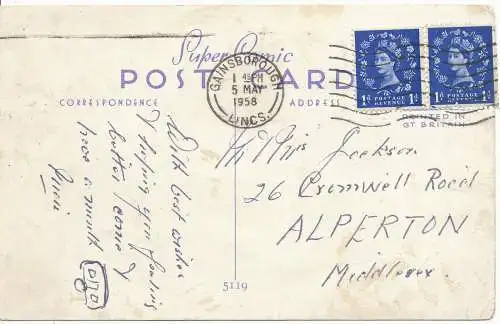 Super Panic
POSTCARD
CORRESPONDENCE
ADDRESS
GAINSBOROUGH
1 45PM
5 MAY
1958
LINCS.
1D POSTAGE REVENUE 1D
1D POSTAGE REVENUE 1D
PRINTED IN
GT BRITAIN
With best wishes
& hoping your feeling
better. Come &
have a
Mrs Jackson
26 Cromwell Road
ALPERTON
Middlesex.
5119